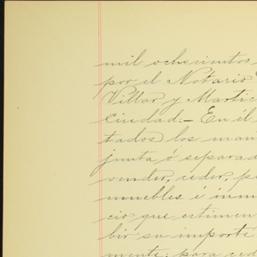 mil ochocientos
por el Notario
Villar y Martí
Ciudad.— En él
tados los man
junta ó separad
vender, ceder, p
muebles é inm
cio que estimen
bir su importe
mente; para ced